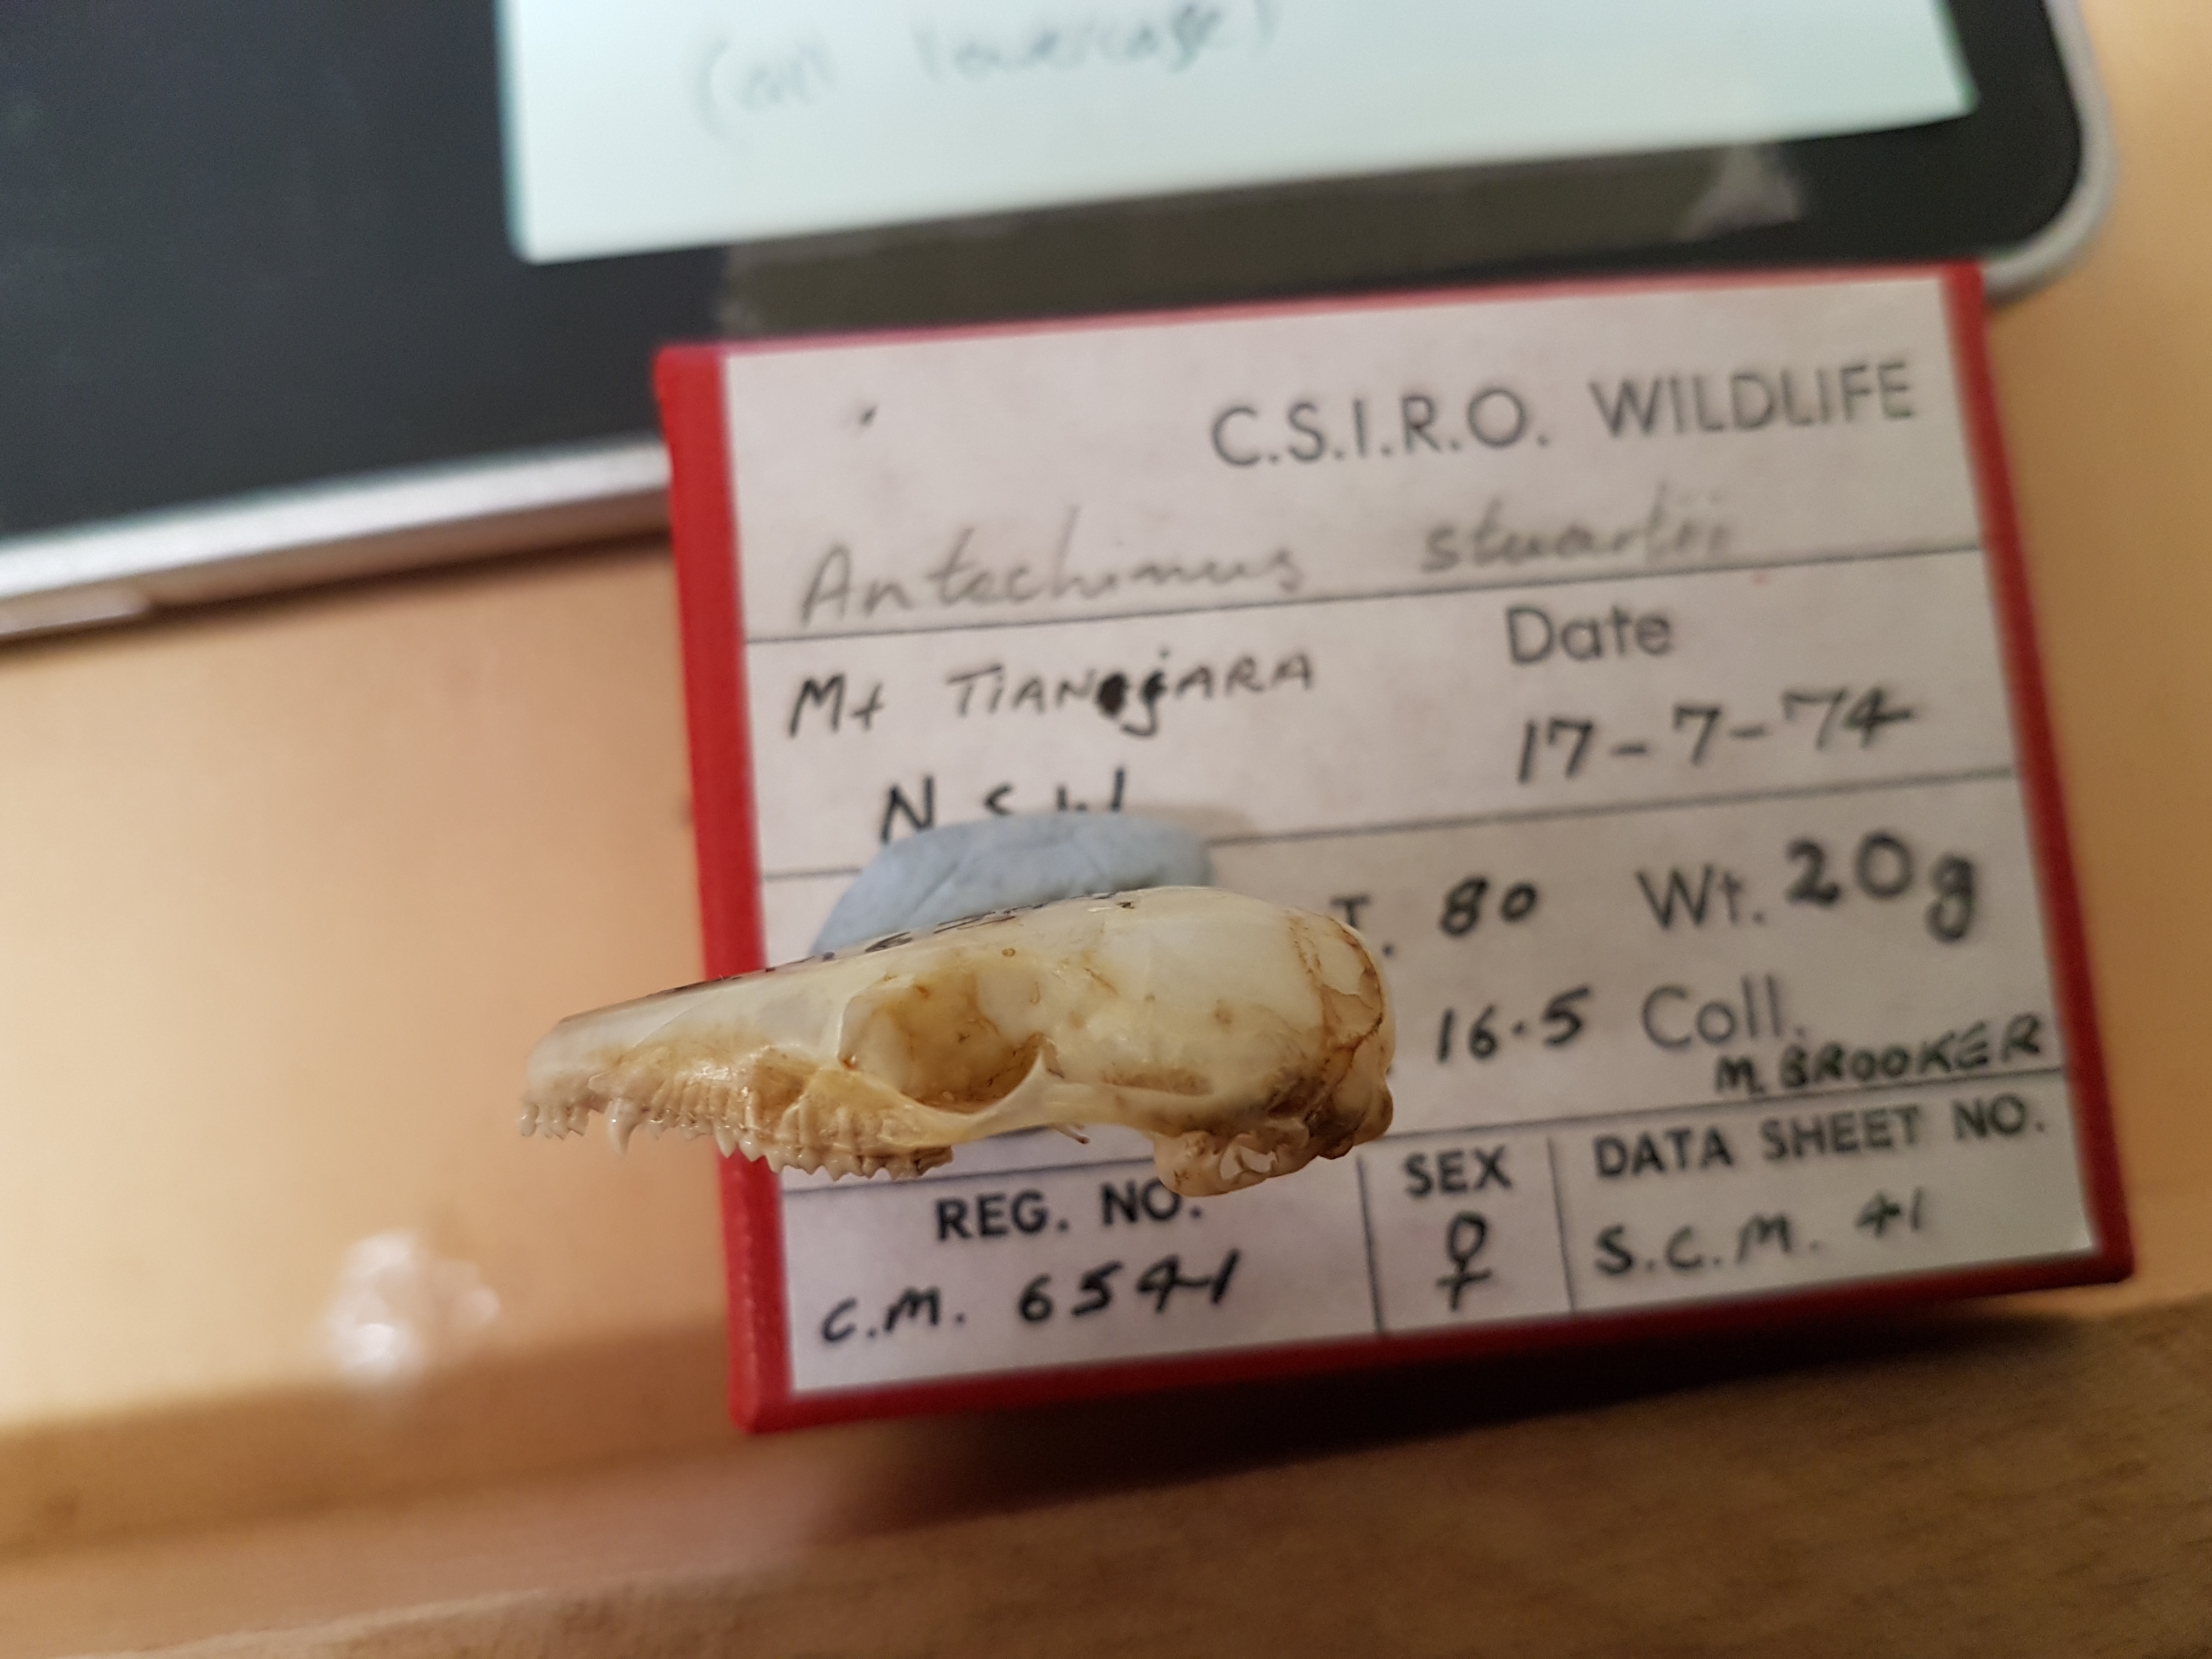 (all lowercase)
C.S.I.R.O. WILDLIFE
Antechinus stuartii
Mt TIANJARA
Date
17-7-74
N.S.W
T. 80 Wt. 20g
16.5 Coll.
M. BROOKER
REG. NO.
C.M. 6541
SEX
♀
DATA SHEET NO.
S.C.M. 41